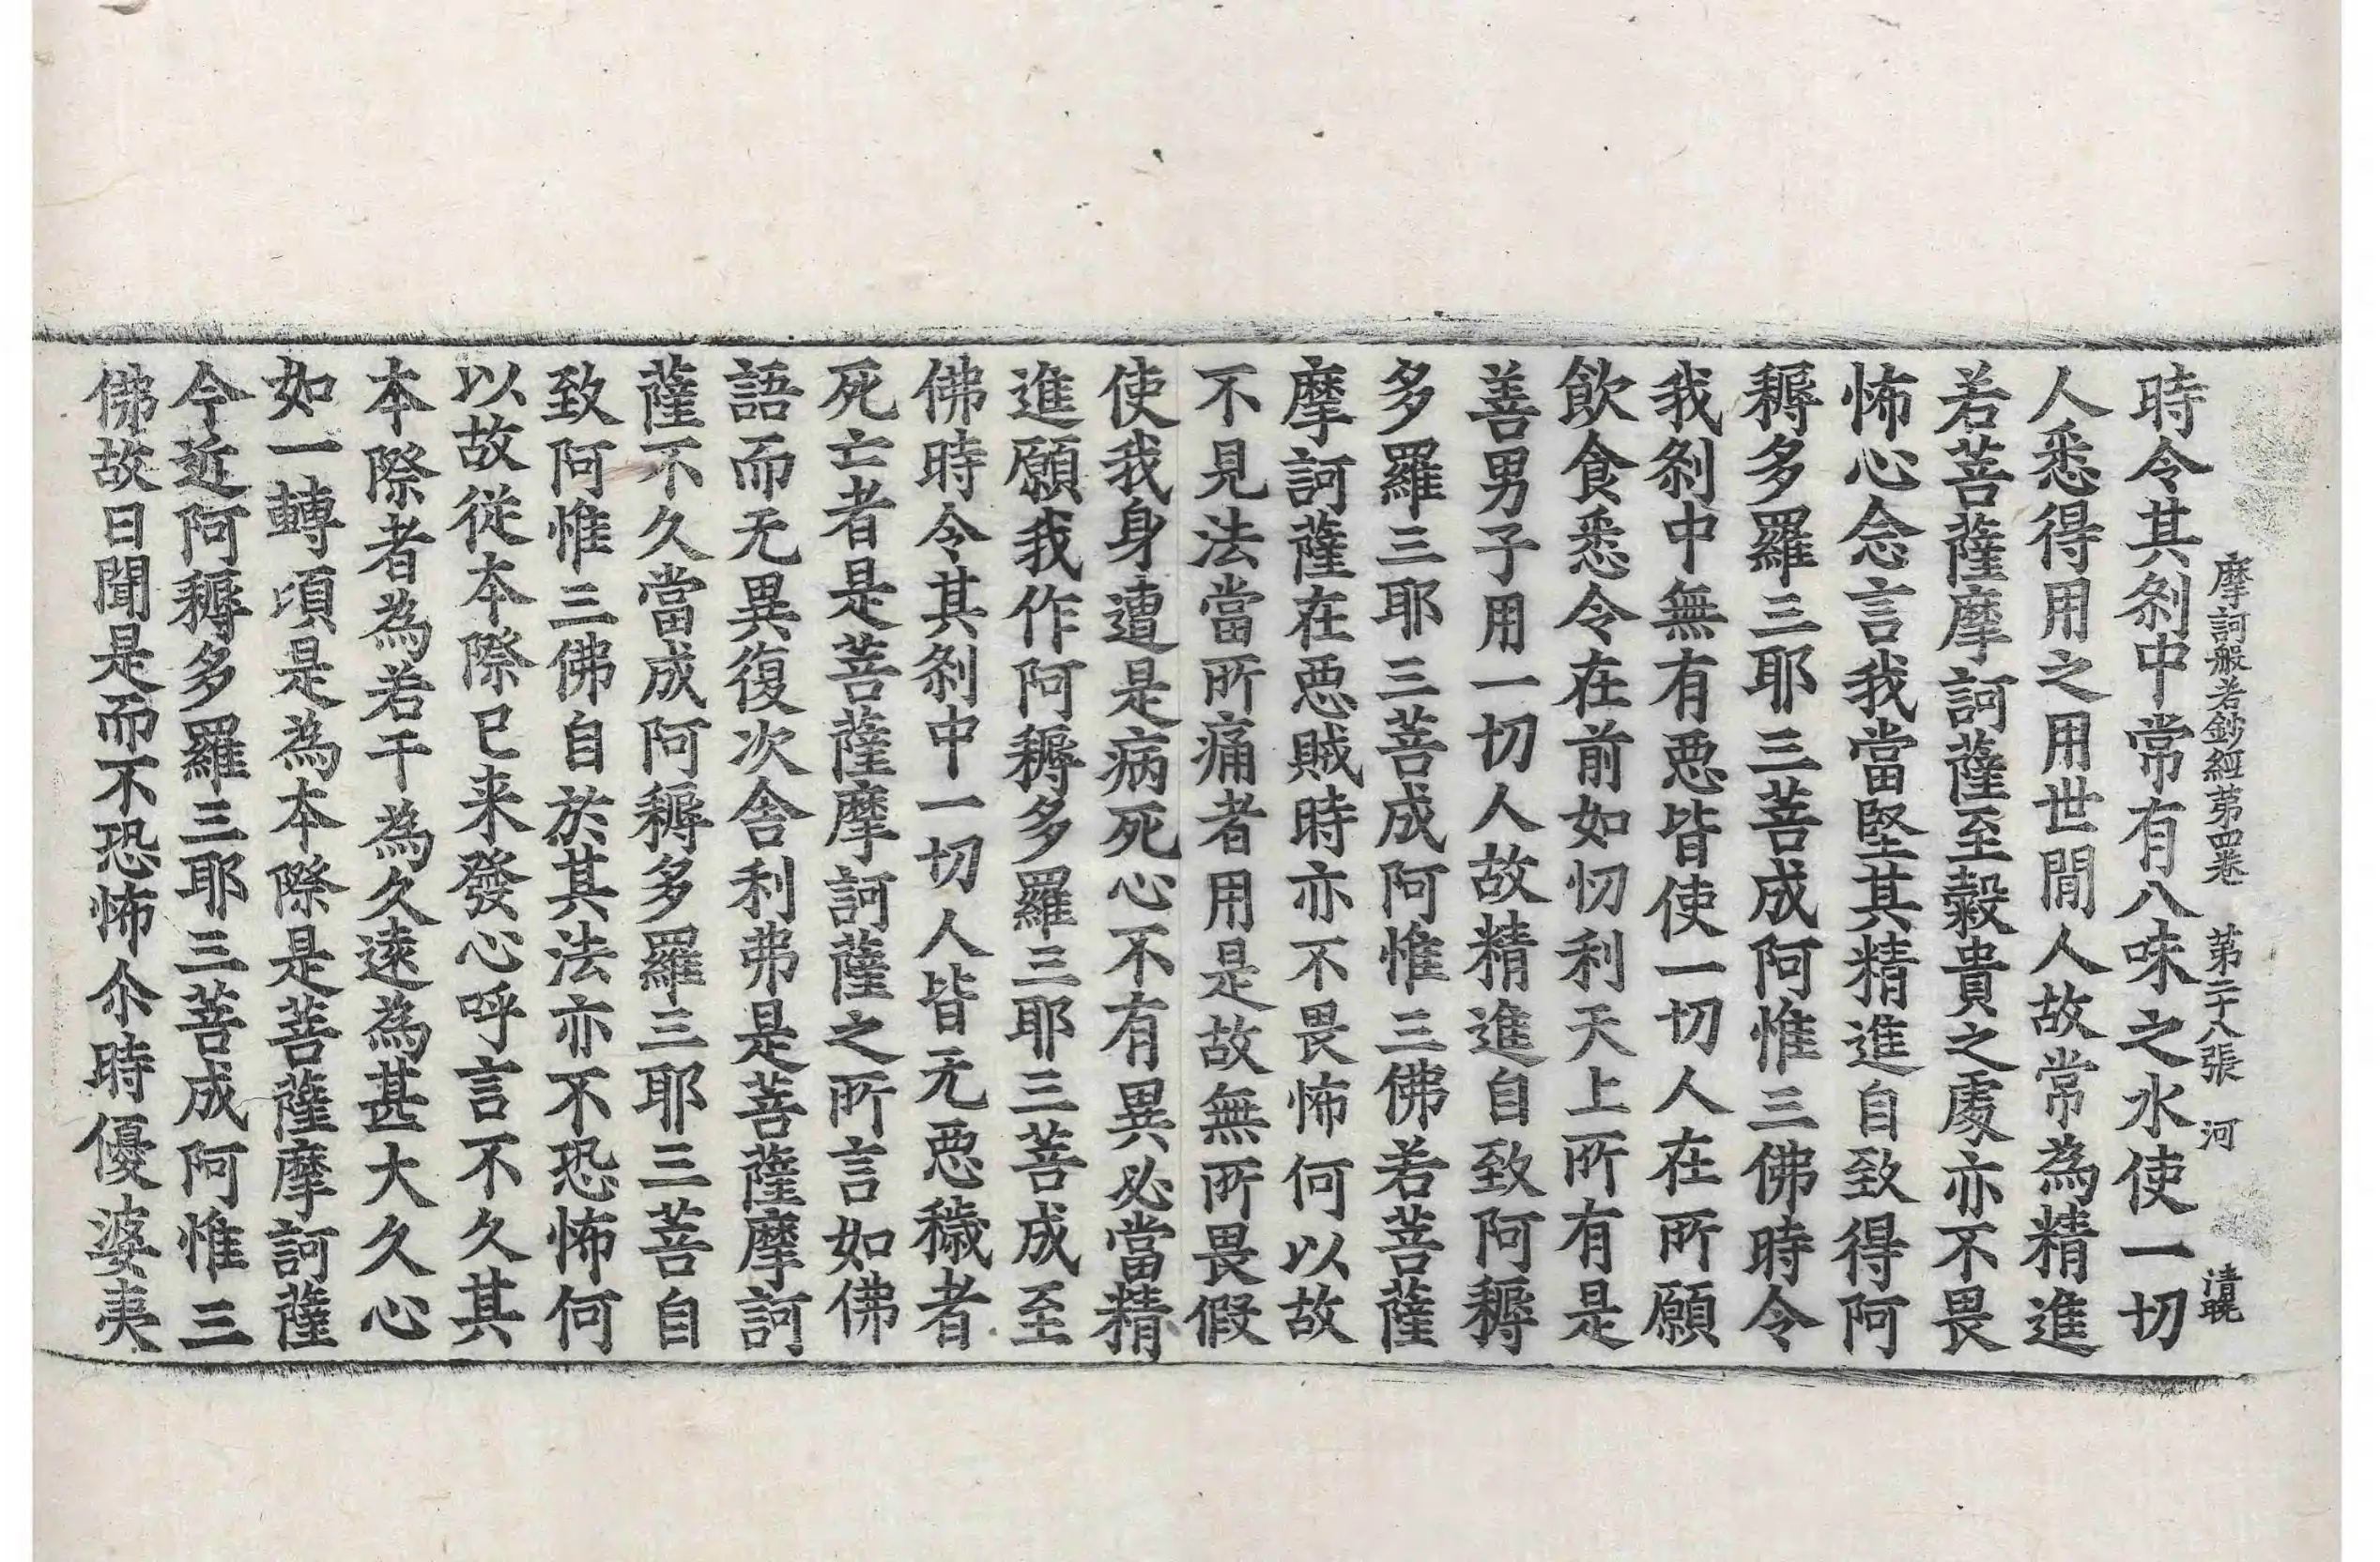 摩訶般若鈔經第四卷　第二十八張　河　清晛
時令其刹中常有八味之水使一切
人悉得用之用世閒人故常為精進
若菩薩摩訶薩至穀貴之處亦不畏
怖心念言我當堅其精進自致得阿
耨多羅三耶三菩成阿惟三佛時令
我刹中無有惡皆使一切人在所願
飲食悉令在前如忉利天上所有是
善男子用一切人故精進自致阿耨
多羅三耶三菩成阿惟三佛若菩薩
摩訶薩在惡賊時亦不畏怖何以故
不見法當所痛者用是故無所畏假
使我身遭是病死心不有異必當精
進願我作阿耨多羅三耶三菩成至
佛時令其刹中一切人皆无惡穢者
死亡者是菩薩摩訶薩之所言如佛
語而无異復次舍利弗是菩薩摩訶
薩不久當成阿耨多羅三耶三菩自
致阿惟三佛自於其法亦不恐怖何
以故從本際已来發心呼言不久其
本際者為若干為久遠為甚大久心
如一轉頃是為本際是菩薩摩訶薩
今近阿耨多羅三耶三菩成阿惟三
佛故曰聞是而不恐怖尒時優婆夷